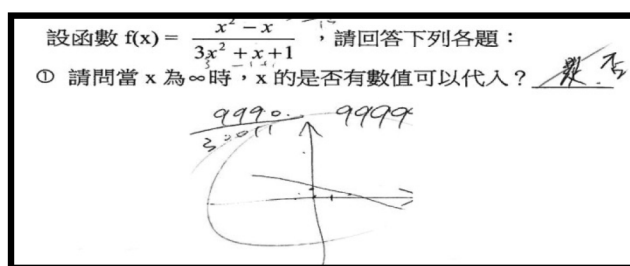 設函數 f(x) = x² − x / 3x² + x + 1 ，請回答下列各題：
① 請問當 x 為∞時，x 的是否有數值可以代入？ 否
9990. 9999